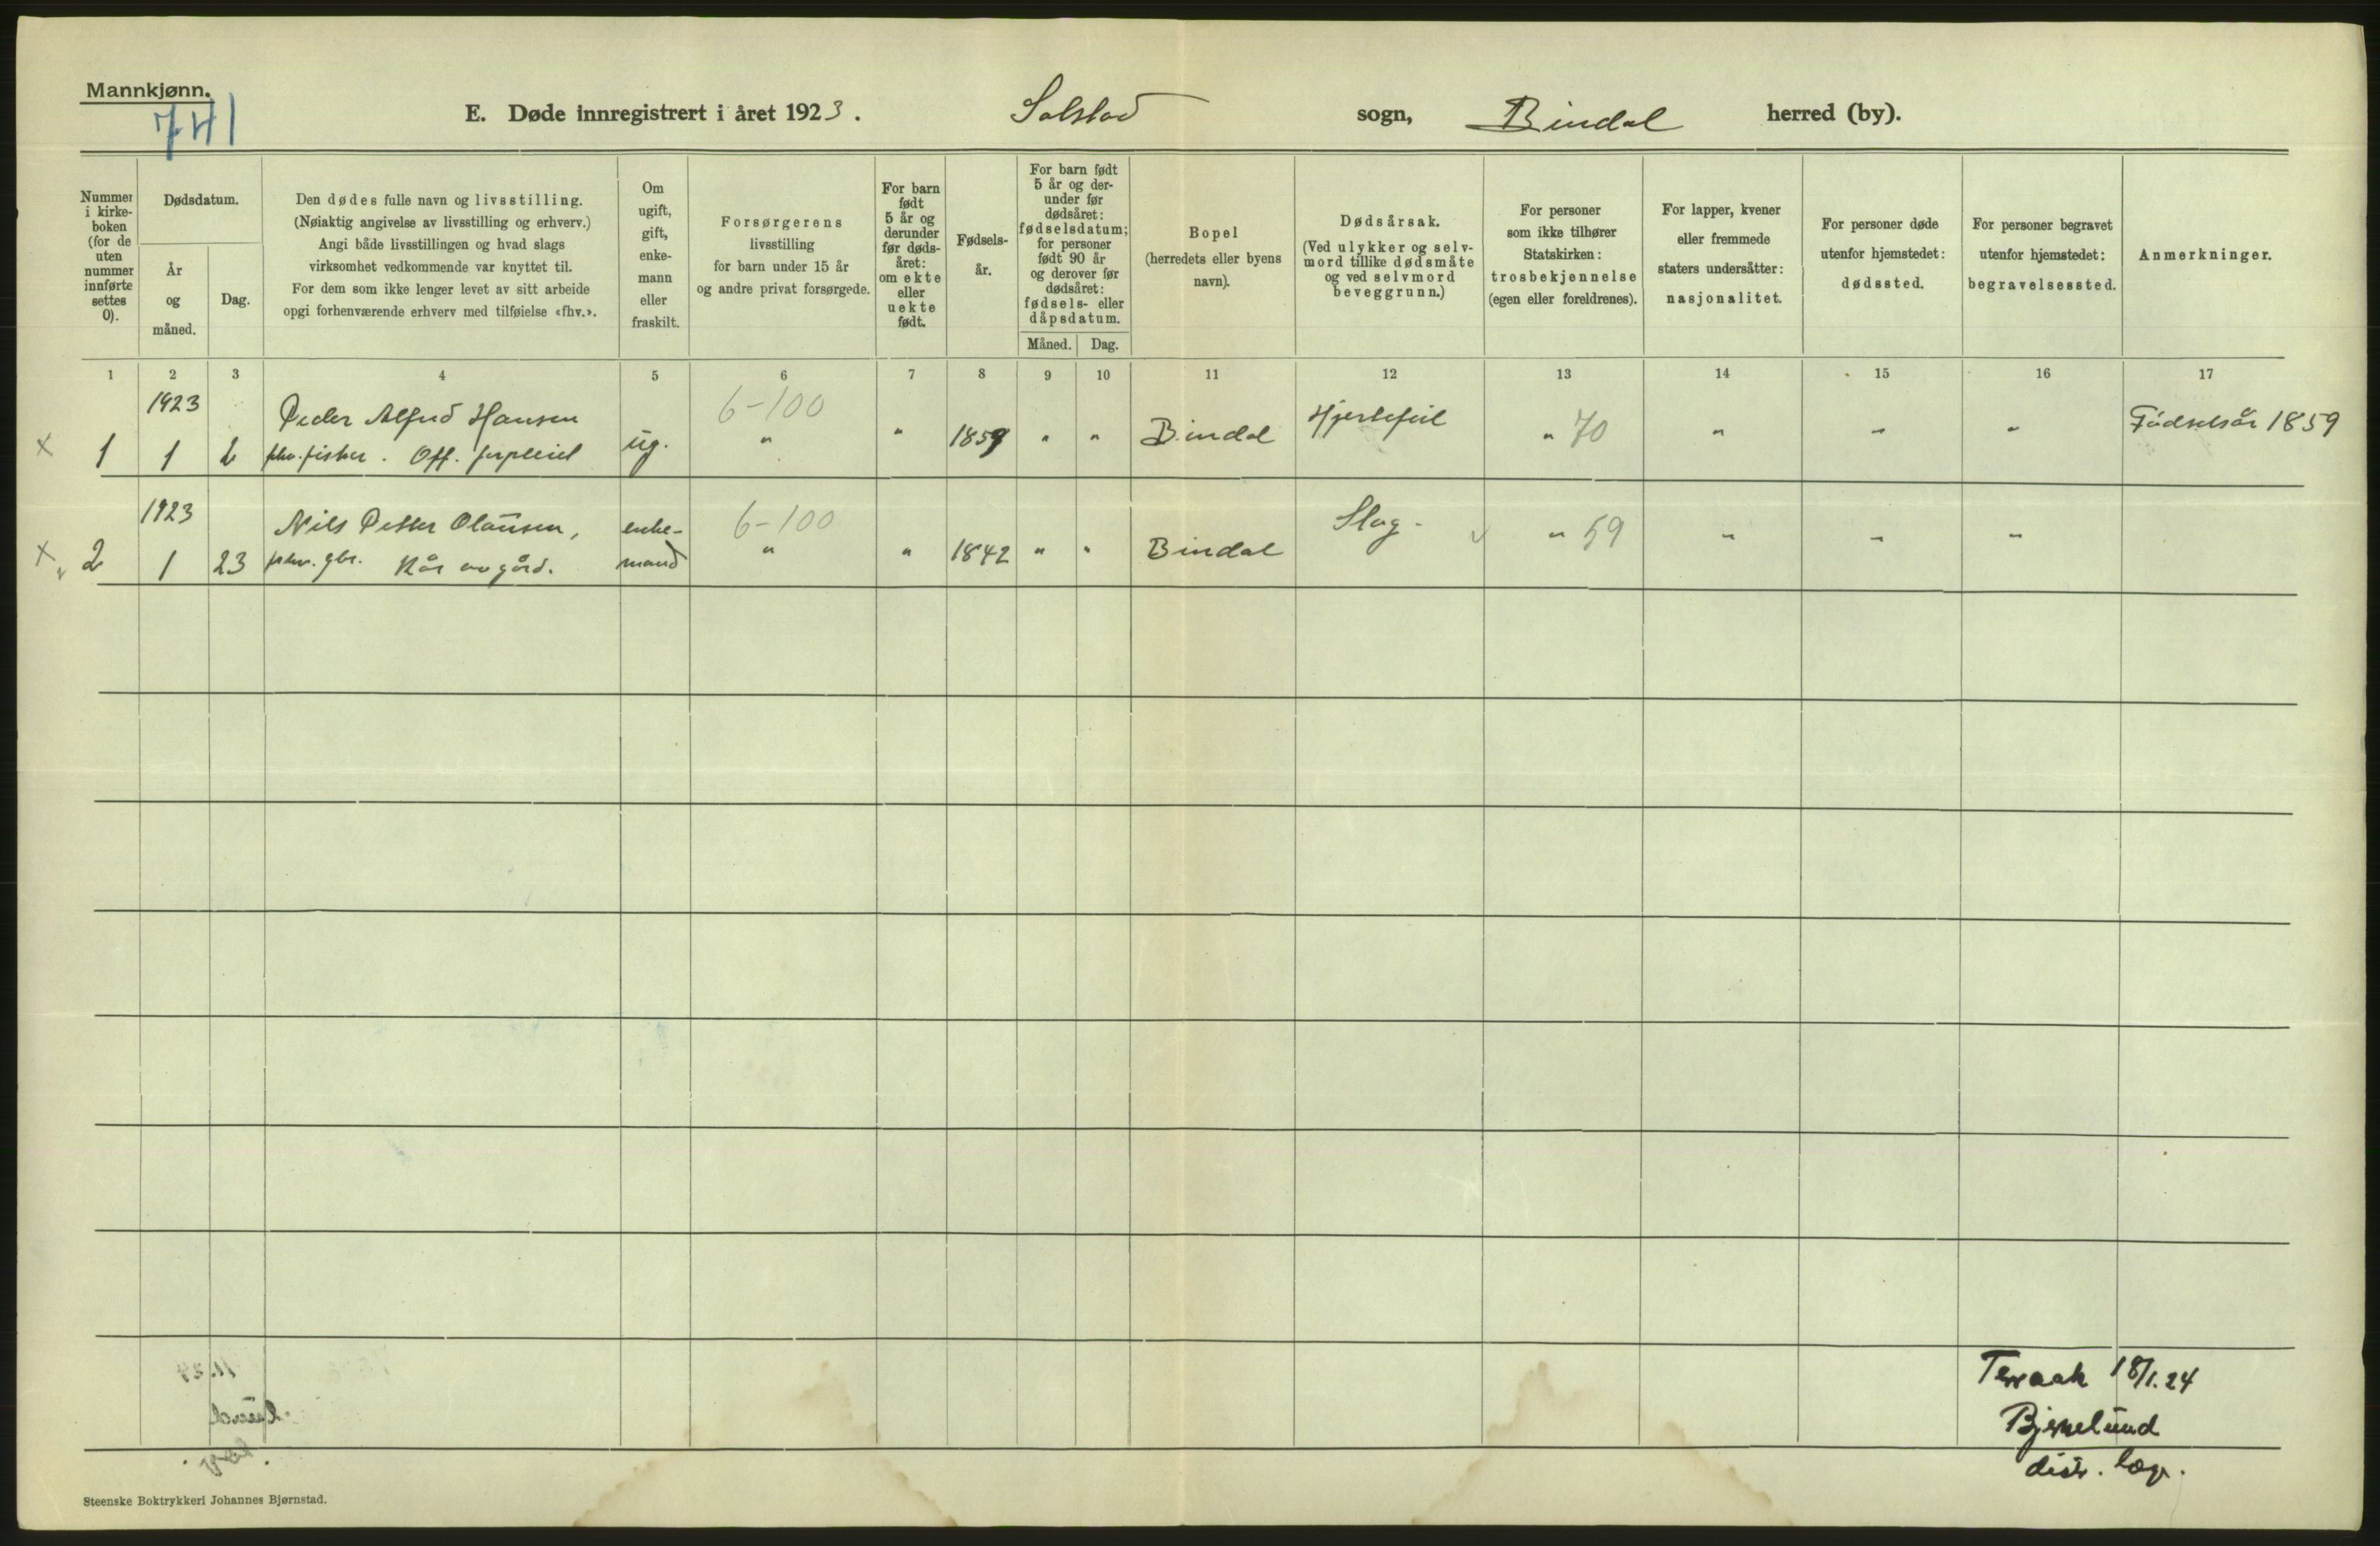 Mannkjønn.
741
E. Døde innregistrert i året 1923. Solstad sogn, Bindal herred (by).
Nummer
i kirke-
boken
(for de
uten
nummer
innførte
settes
0).
Dødsdatum.
År
og
måned.
Dag.
Den dødes fulle navn og livsstilling.
(Nøiaktig angivelse av livsstilling og erhverv.)
Angi både livsstillingen og hvad slags
virksomhet vedkommende var knyttet til.
For dem som ikke lenger levet av sitt arbeide
opgi forhenværende erhverv med tilføielse «fhv.».
Om
ugift,
gift,
enke-
mann
eller
fraskilt.
Forsørgerens
livsstilling
for barn under 15 år
og andre privat forsørgede.
For barn
født
5 år og
derunder
før døds-
året:
om ekte
eller
uekte
født.
Fødsels-
år.
For barn født
5 år og der-
under før
dødsåret:
fødselsdatum;
for personer
født 90 år
og derover før
dødsåret:
fødsels- eller
dåpsdatum.
Måned. Dag.
Bopel
(herredets eller byens
navn).
Dødsårsak.
(Ved ulykker og selv-
mord tillike dødsmåte
og ved selvmord
beveggrunn.)
For personer
som ikke tilhører
Statskirken:
trosbekjennelse
(egen eller foreldrenes).
For lapper, kvener
eller fremmede
staters undersåtter:
nasjonalitet.
For personer døde
utenfor hjemstedet:
dødssted.
For personer begravet
utenfor hjemstedet:
begravelsessted.
Anmerkninger.
1 2 3 4 5 6 7 8 9 10 11 12 13 14 15 16 17
1923 Peder Alfred Hansen 6-100 Hjertefeil Fødselsår 1859
x 1 1 2 fhv. fisker. Off. forpleiet ug. " " 1859 " " Bindal " 70 " " "
1923 Nils Petter Olausen, enke- 6-100 Slag -
x 2 1 23 fhv. gbr. Kår av gård. mand " " 1842 " " Bindal " 59 " " "
Terraak 18/1.24
Bjerkelund
distr. læge.
Steenske Boktrykkeri Johannes Bjørnstad.